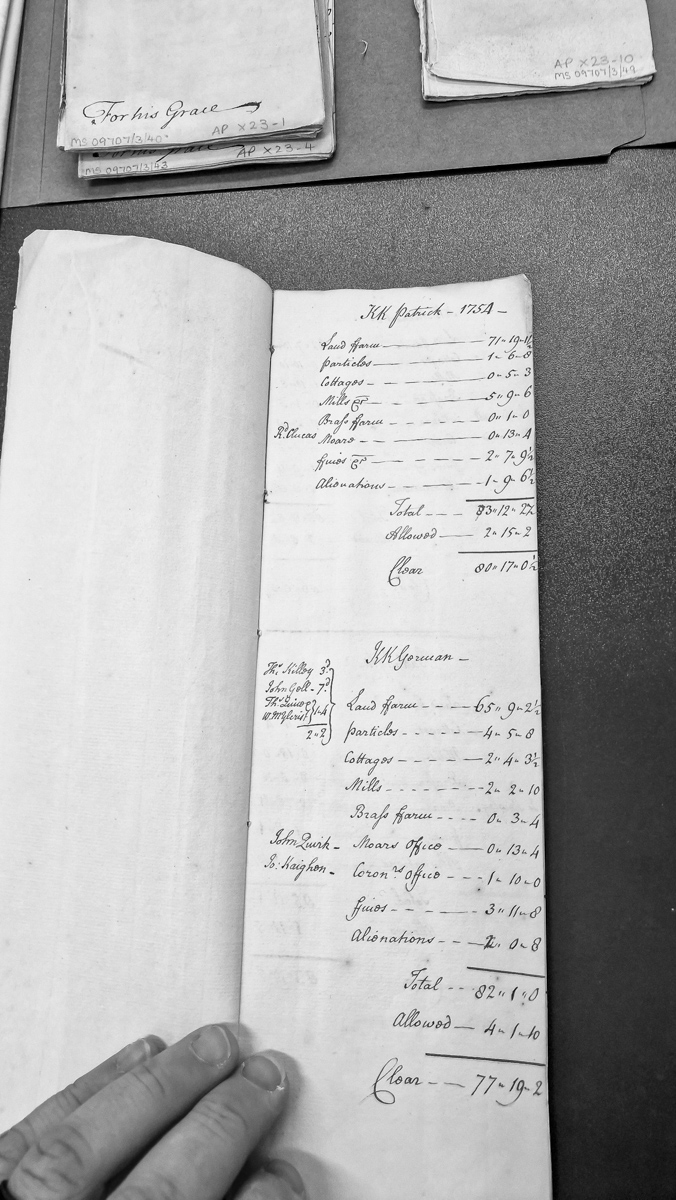 For his Grace
MS 09707/3/40
AP X23-1
AP X23-4
MS 09707/3/43
AP X23-10
MS 09707/3/49
KK Patrick - 1754 -
Land ffarm 71 - 19 - 1½
Particles 1 - 6 - 8
Cottages - 0 - 5 - 3
Mills &c 5 " 9 - 6
Brass ffarm 0 " 1 - 0
Rd. Clucas Moare 0 " 13 - 4
ffines &c 2 " 7 - 9½
Alienations 1 - 9 - 6½
Total 83 " 12 - 2½
Allowed 2 " 15 - 2
Clear 80 " 17 - 0½
KK German -
Thos. Killey 3d
John Gell - 7d
Thos. Quine
W. McYlcrist } 1 - 4
2 " 2
Land ffarm 65 " 9 - 2½
particles 4 - 5 - 8
Cottages 2 " 4 - 3½
Mills 2 - 2 - 10
Brass ffarm 0 - 3 - 4
John Quirk - Moars Office 0 " 13 - 4
Jo: Kaighen - Coronrs Office 1 - 10 - 0
ffines 3 " 11 - 8
Alienations 2 - 0 - 8
Total 82 " 1 " 0
Allowed 4 - 1 - 10
Clear 77 - 19 - 2